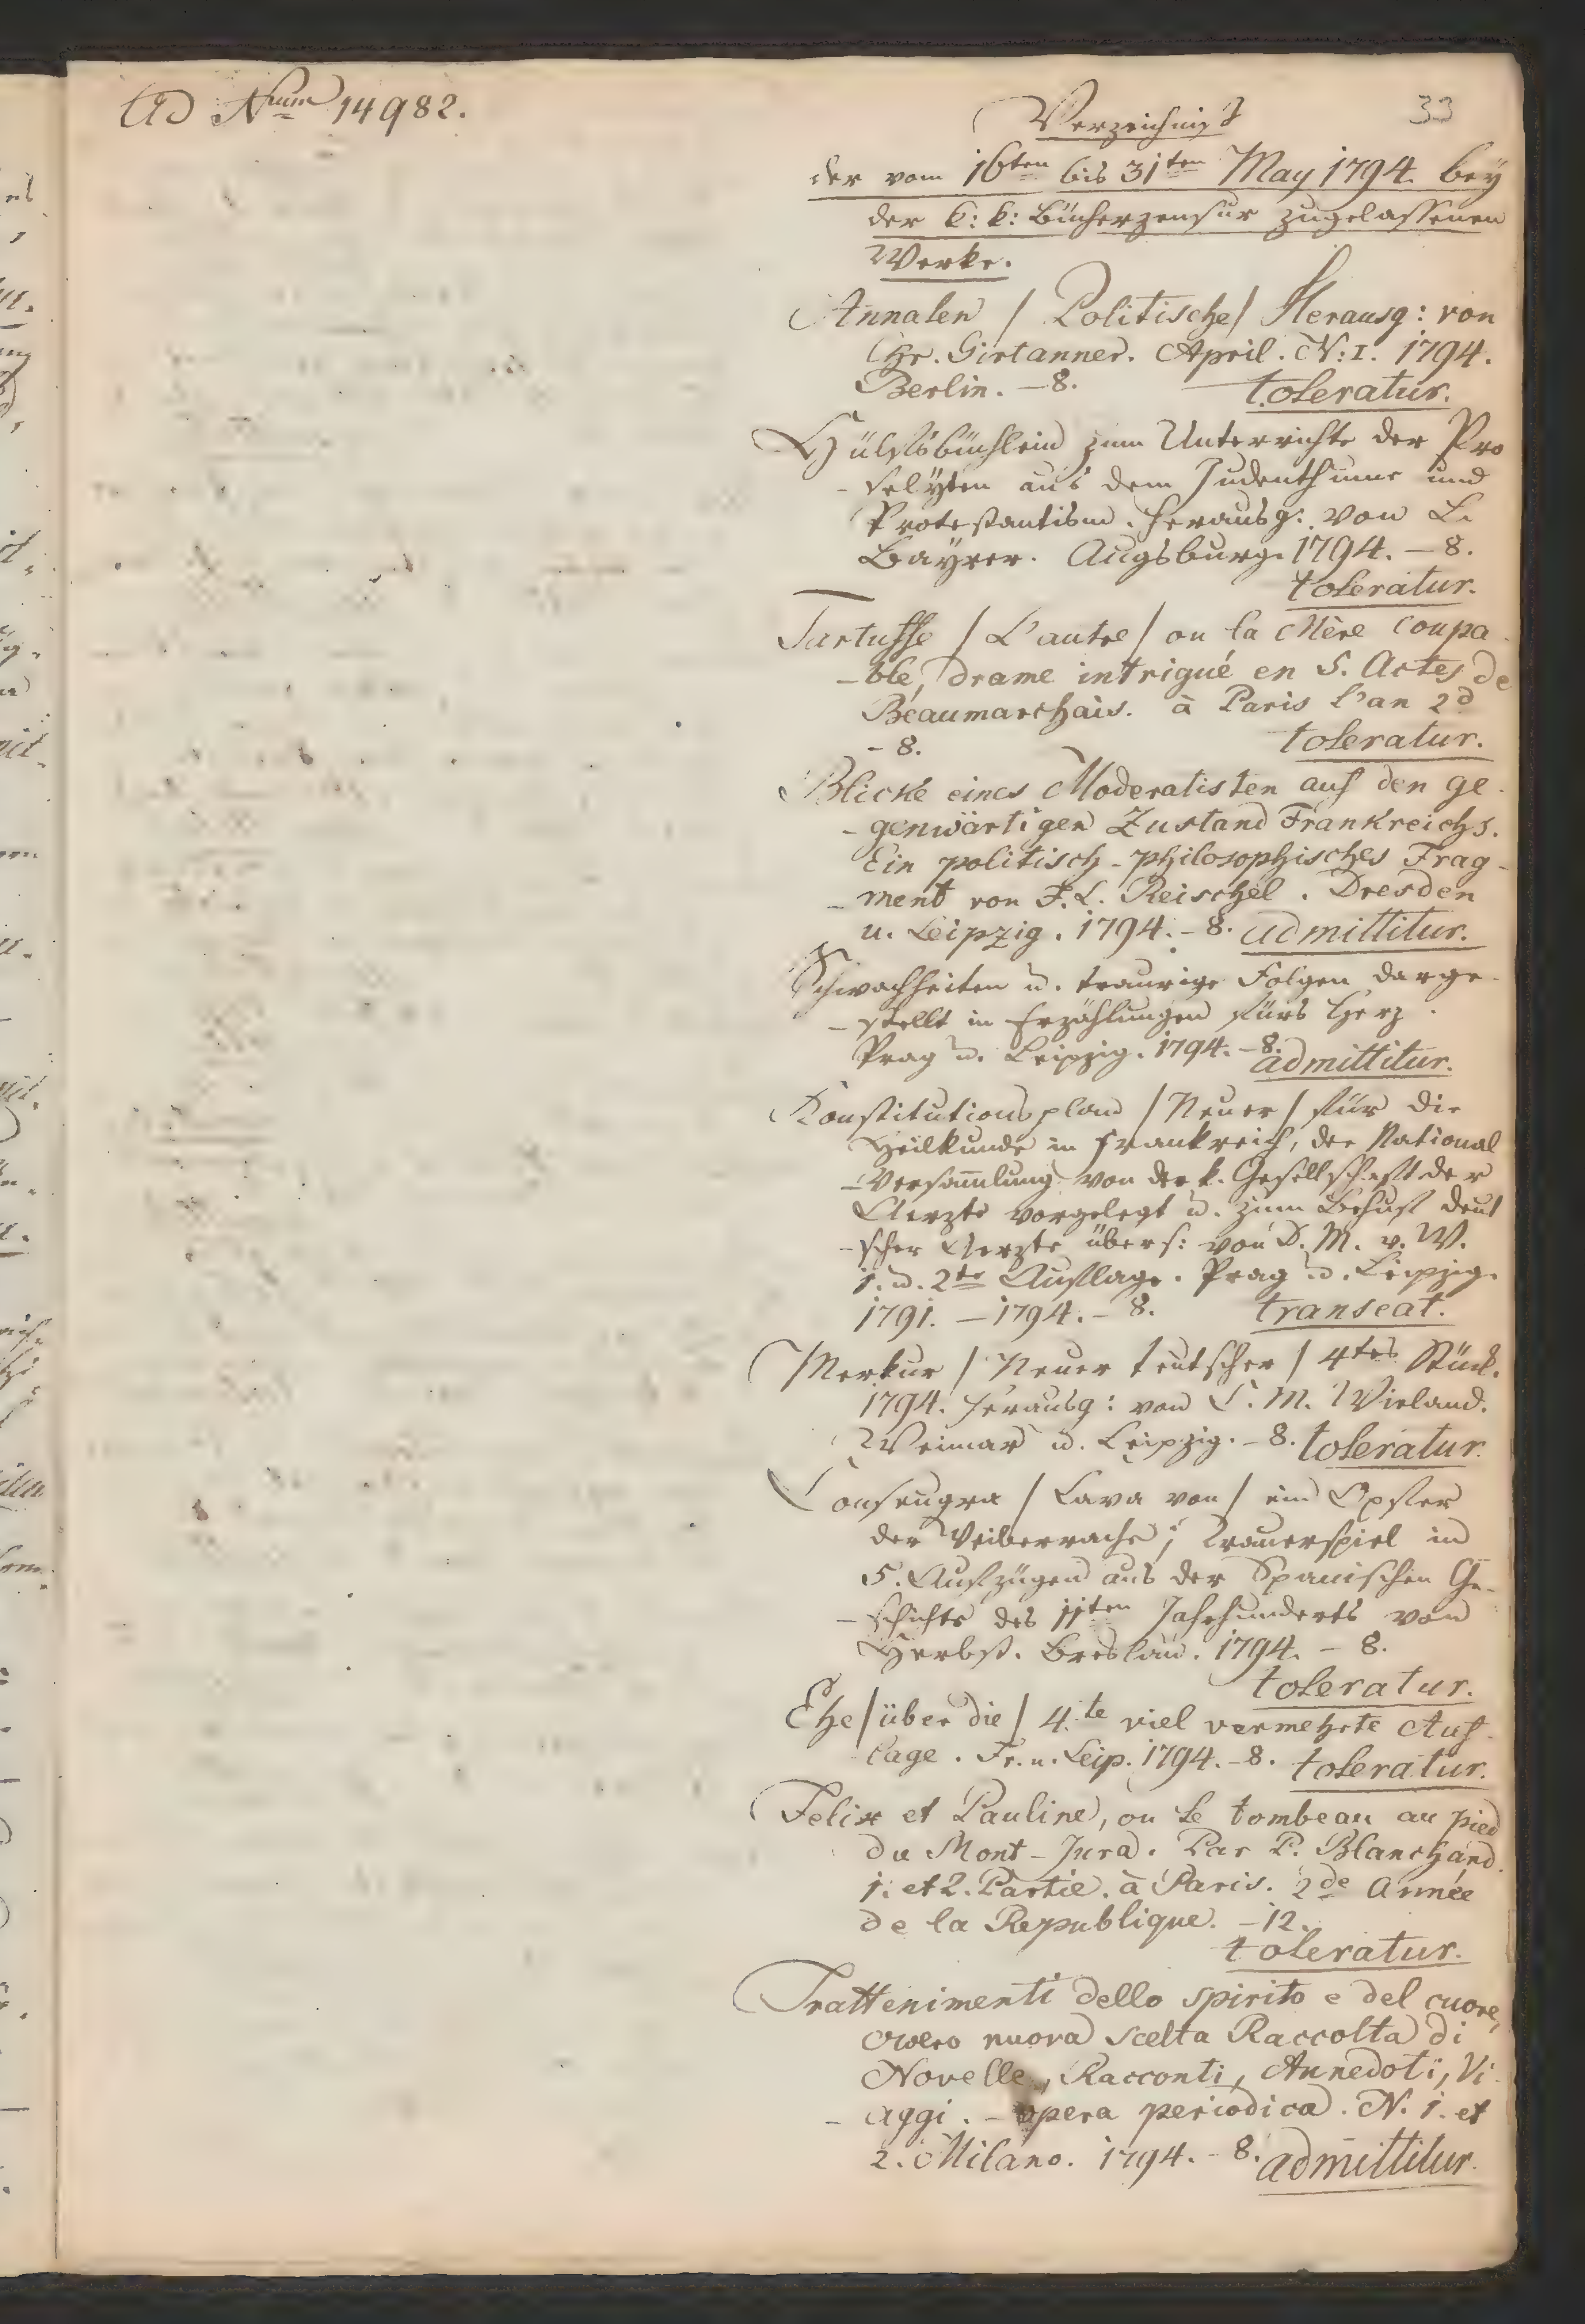 Ad Num 14982.
33
Verzeichniß
der vom 16ten bis 31ten May 1794. bey
der k: k: Bücherzensur zugelassenen
Werke.
Annalen / Politische / Herausg: von
Chr. Girtanner. April. N: I. 1794.
Berlin. – 8. toleratur.
Hülfsbüchlein zum Unterrichte der Pro
- selÿten aus dem Judenthume und
Protestantism. herausg: von L.
Bayrer. Augsburg. 1794. – 8.
toleratur.
Tartuffe / L'autre / ou la Mère coupa
- ble, drame intrigué en 5. Actes de
Beaumarchais. à Paris l'an 2d
- 8. toleratur.
Blicke eines Moderatisten auf den ge
- genwärtigen Zustand Frankreichs.
Ein politisch - philosophisches Frag -
- ment von F. L. Reischel. Dresden
u. Leipzig. 1794. – 8. admittitur.
Schwachheiten u. traurige Folgen darge-
- stellt in Erzählungen fürs Herz.
Prag u. Leipzig. 1794. – 8. admittitur.
Konstitutionsplan / Neuer / für die
Heilkunde in Frankreich, der National
- Versam̄lung von der k. Gesellschaft der
Aerzte vorgelegt u. zum Behuf deut
- scher Aerzte übers: von D. M. v. W.
1. u. 2te Auflage. Prag u. Leipzig.
1791. – 1794. – 8. transeat.
Merkur / Neuer teutscher / 4tes Stück.
1794. herausg: von C. M. Wieland.
Weimar u. Leipzig. – 8. toleratur.
Consuegra / Cava von / ein Opfer
der Weiberrache; Trauerspiel in
5. Aufzügen aus der Spanischen Ge-
- schichte des 11ten Jahrhunderts von
Herbst. Breslau. 1794. – 8.
toleratur.
Ehe / über die / 4.te viel vermehrte Auf-
lage. Fr. u. Leip. 1794. – 8. toleratur.
Felix et Pauline, ou le tombeau au pied
du Mont - Jura. Par P. Blanchard.
1. et 2. Partie. à Paris. 2de Année
de la Republique. – 12.
toleratur.
Trattenimenti dello spirito e del cuore,
overo nuova scelta Raccolta di
Novelle, Racconti, Annedoti, Vi
- aggi. – opera periodica. N. 1. et
2. Milano. 1794. – 8. admittitur.